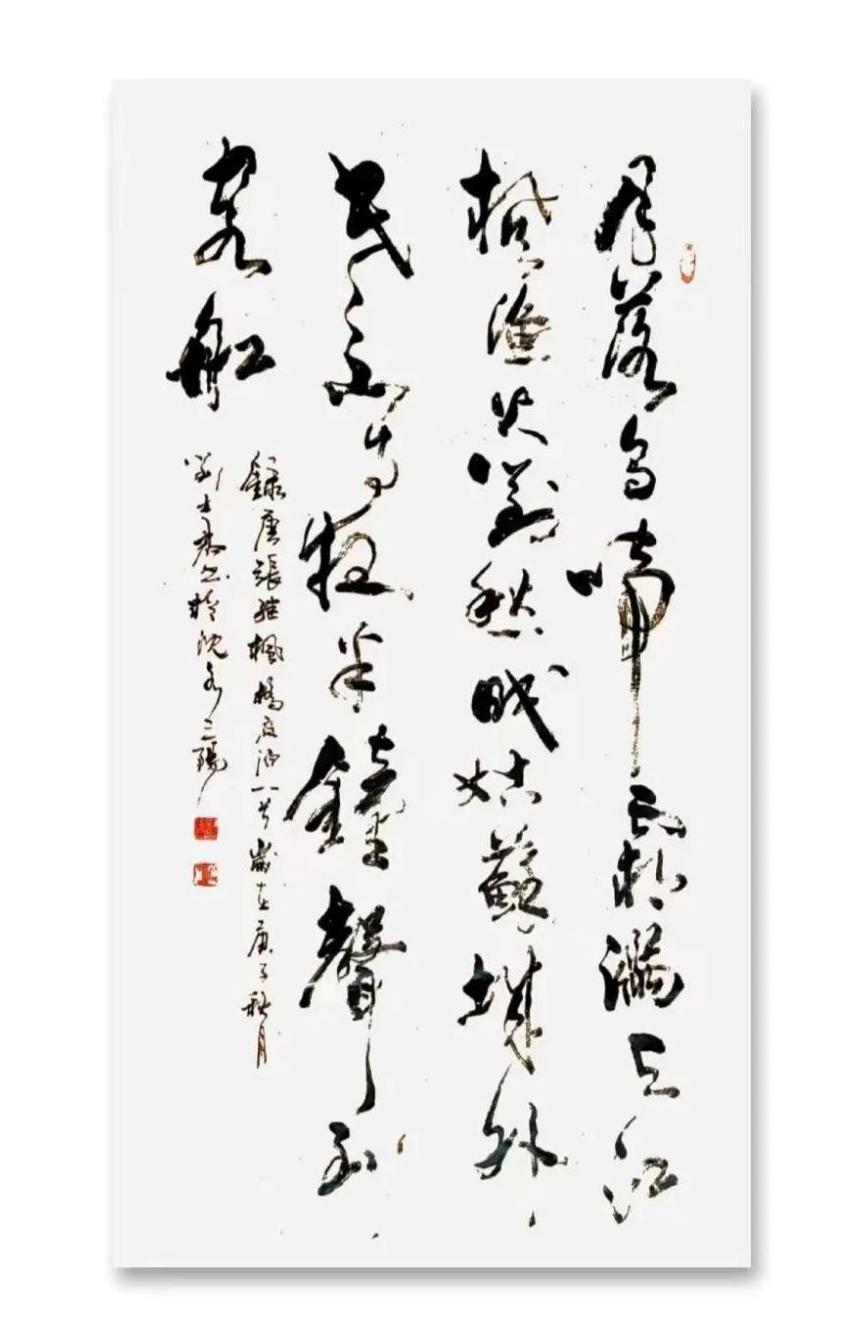 月落烏啼霜滿天江
楓漁火對愁眠姑蘇城外
寒山寺夜半鐘聲到
客船
錄唐張繼楓橋夜泊一首歲在庚子秋月
劉士書於沈水之陽